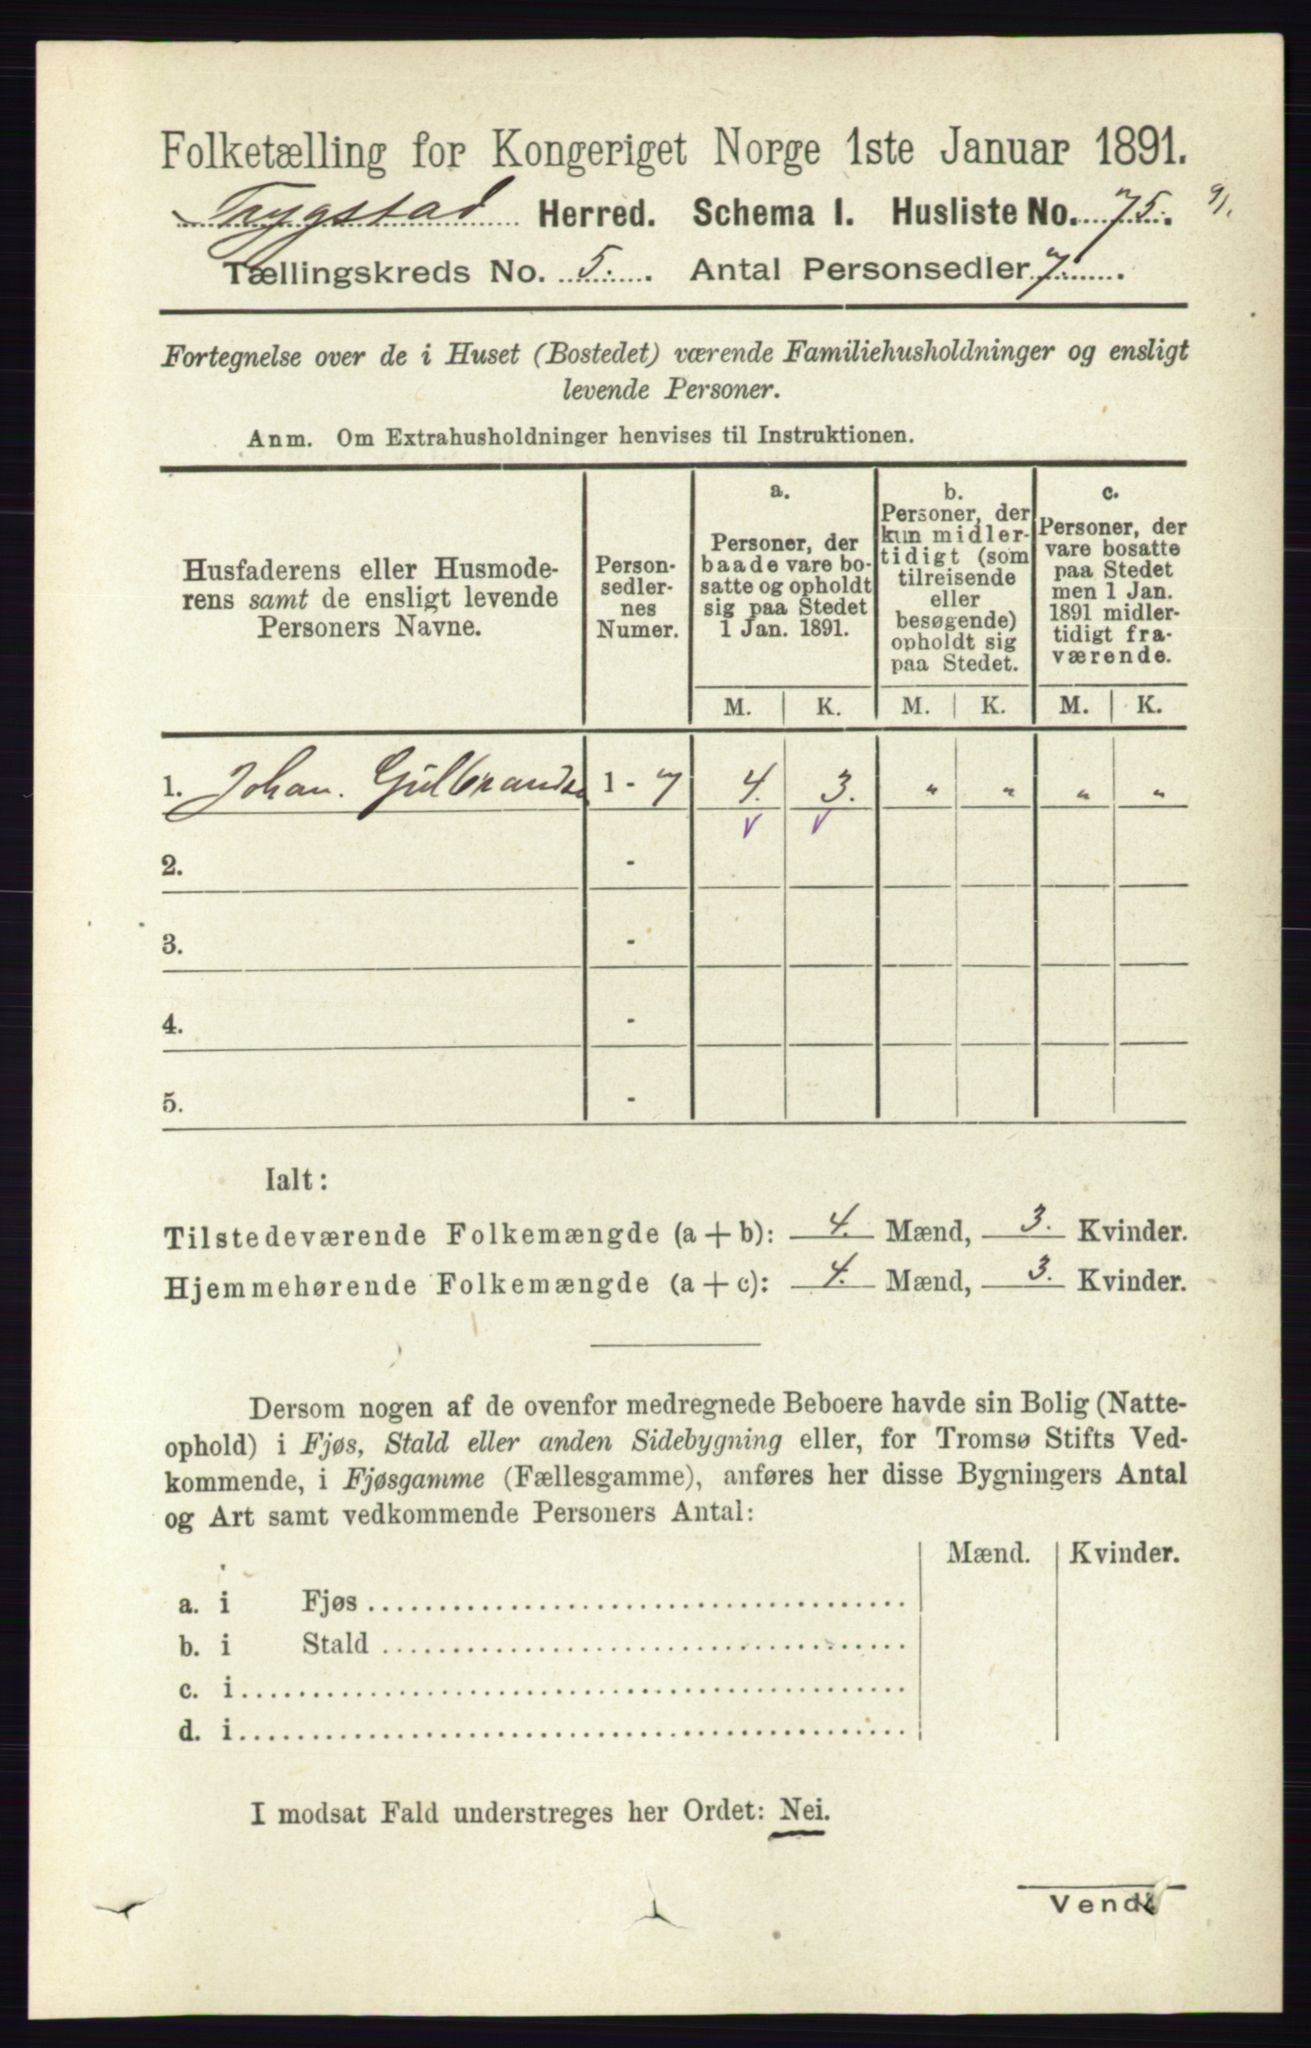 Folketælling for Kongeriget Norge 1ste Januar 1891.
Trygstad Herred. Schema I. Husliste No. 75. 9/.
Tællingskreds No. 5. Antal Personsedler 7.
Fortegnelse over de i Huset (Bostedet) værende Familiehusholdninger og ensligt
levende Personer.
Anm. Om Extrahusholdninger henvises til Instruktionen.
Husfaderens eller Husmode-
rens samt de ensligt levende
Personers Navne.
Person-
sedler-
nes
Numer.
a.
Personer, der
baade vare bo-
satte og opholdt
sig paa Stedet
1 Jan. 1891.
b.
Personer, der
kun midler-
tidigt (som
tilreisende
eller
besøgende)
opholdt sig
paa Stedet.
c.
Personer, der
vare bosatte
paa Stedet
men 1 Jan.
1891 midler-
tidigt fra-
værende.
M. K. M. K. M. K.
1. Johan. Gulbrandsen 1 - 7 4. 3. " " " "
2. -
3. -
4. -
5. -
Ialt:
Tilstedeværende Folkemængde (a + b): 4. Mænd, 3. Kvinder.
Hjemmehørende Folkemængde (a + c): 4. Mænd, 3. Kvinder.
Dersom nogen af de ovenfor medregnede Beboere havde sin Bolig (Natte-
ophold) i Fjøs, Stald eller anden Sidebygning eller, for Tromsø Stifts Ved-
kommende, i Fjøsgamme (Fællesgamme), anføres her disse Bygningers Antal
og Art samt vedkommende Personers Antal:
Mænd. Kvinder.
a. i Fjøs
b. i Stald
c. i
d. i
I modsat Fald understreges her Ordet: Nei.
Vend!